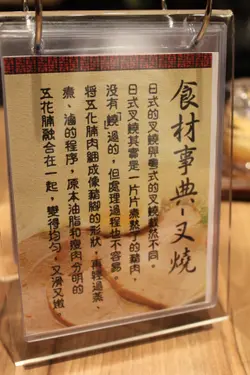 食材事典-叉燒
日式的叉燒與粵式的叉燒截然不同。
日式叉燒其實是一片片煮熟了的豬肉，
沒有「燒」過的，但處理過程也不容易
將五花腩肉綑成像豬腳的形狀，再經過蒸、
煮、滷的程序，原本油脂和瘦肉分明的
五花腩融合在一起，變得均勻，又滑又嫩